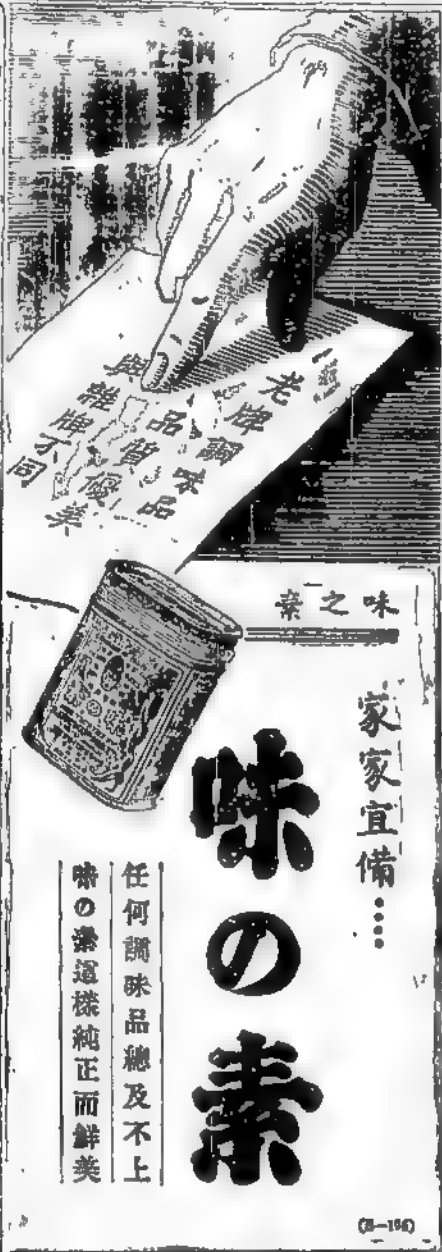 老牌調味品
品質優美
與雜牌不同
味之素
家家宜備....
味の素
任何調味品總及不上
味の素這樣純正而鮮美